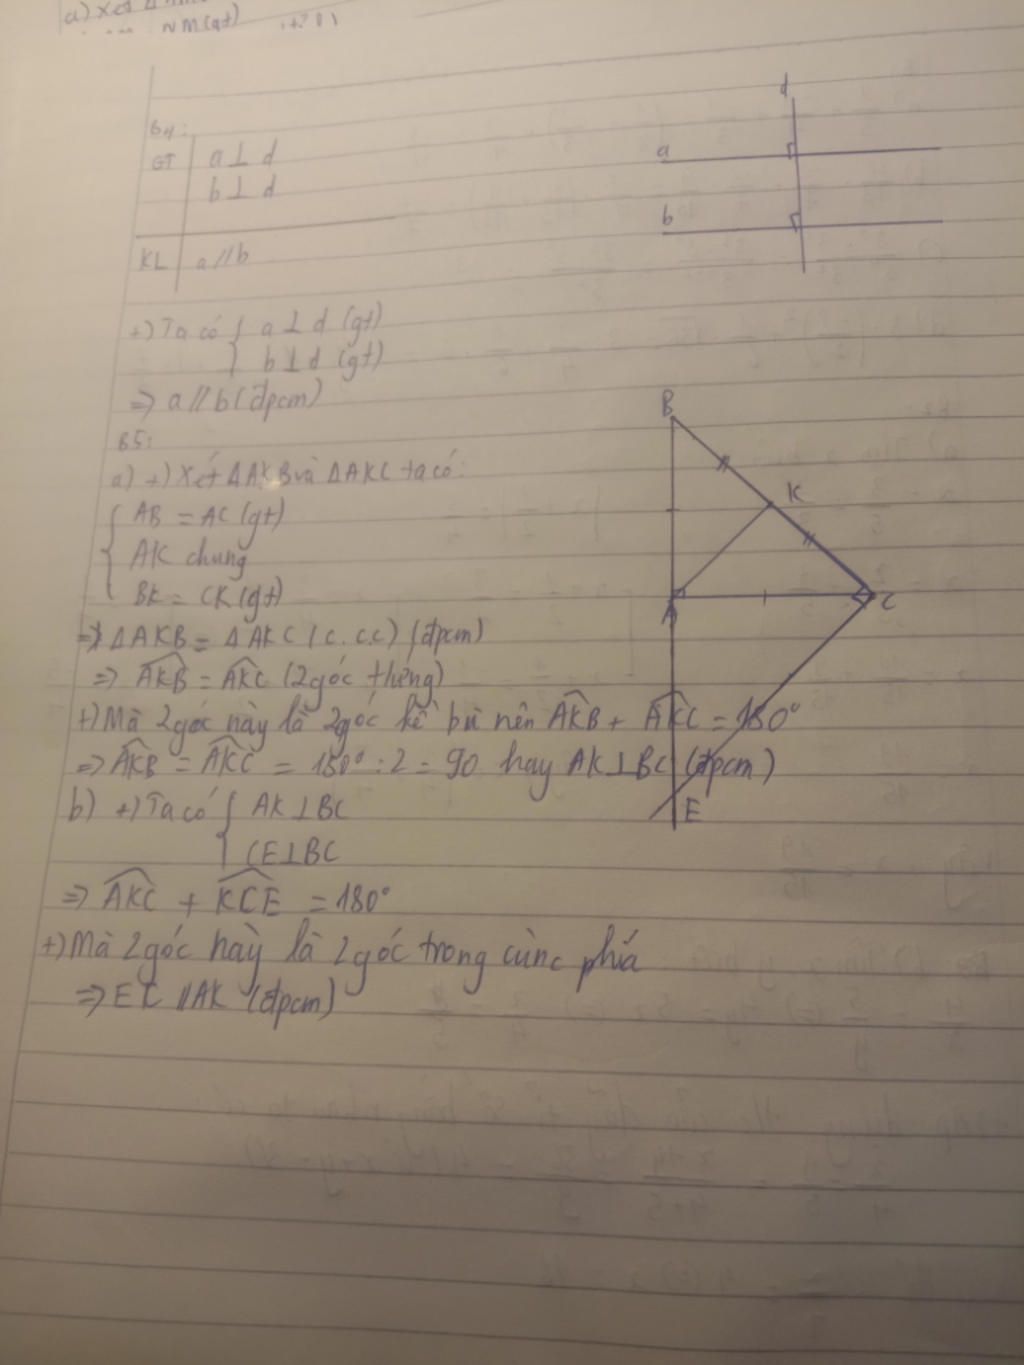 a) xét Δ
NM (gt)
B4:
GT a ⊥ d
b ⊥ d
KL a // b
d
a
b
+) Ta có { a ⊥ d (gt)
b ⊥ d (gt)
=> a // b (đpcm)
B5:
a) +) Xét ΔAKB và ΔAKC ta có:
AB = AC (gt)
AK chung
BK = CK (gt)
=> ΔAKB = ΔAKC (c.c.c) (đpcm)
=> AKB = AKC (2 góc tướng)
+) Mà 2 góc này là 2 góc kề bù nên AKB + AKC = 180°
=> AKB = AKC = 180° : 2 = 90 hay AK ⊥ BC (đpcm)
b) +) Ta có { AK ⊥ BC
CE ⊥ BC
=> AKC + KCE = 180°
+) Mà 2 góc này là 2 góc trong cùng phía
=> EC // AK (đpcm)
B
K
A
C
E